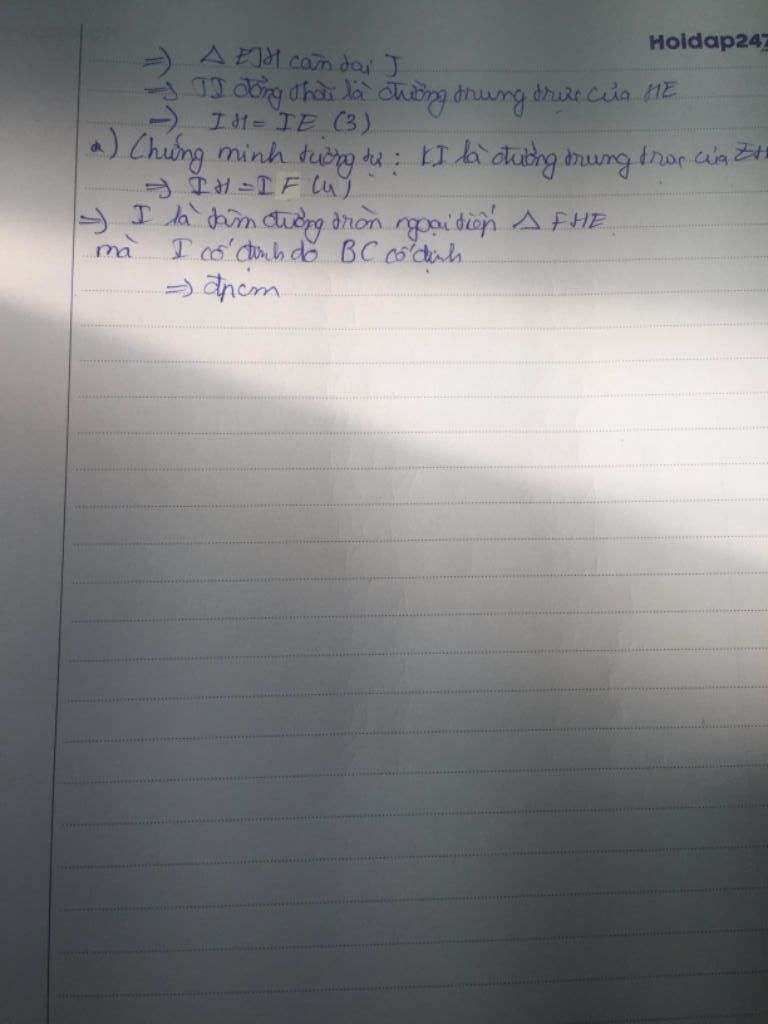 Hoidap247
=> Δ EJH cân tại J
=> JI đồng thời là đường trung trực của HE
=> IH = IE (3)
*) Chứng minh tương tự: KI là đường trung trực của
=> IH = IF (4)
=> I là tâm đường tròn ngoại tiếp Δ FHE
mà I cố định do BC cố định
=> đpcm